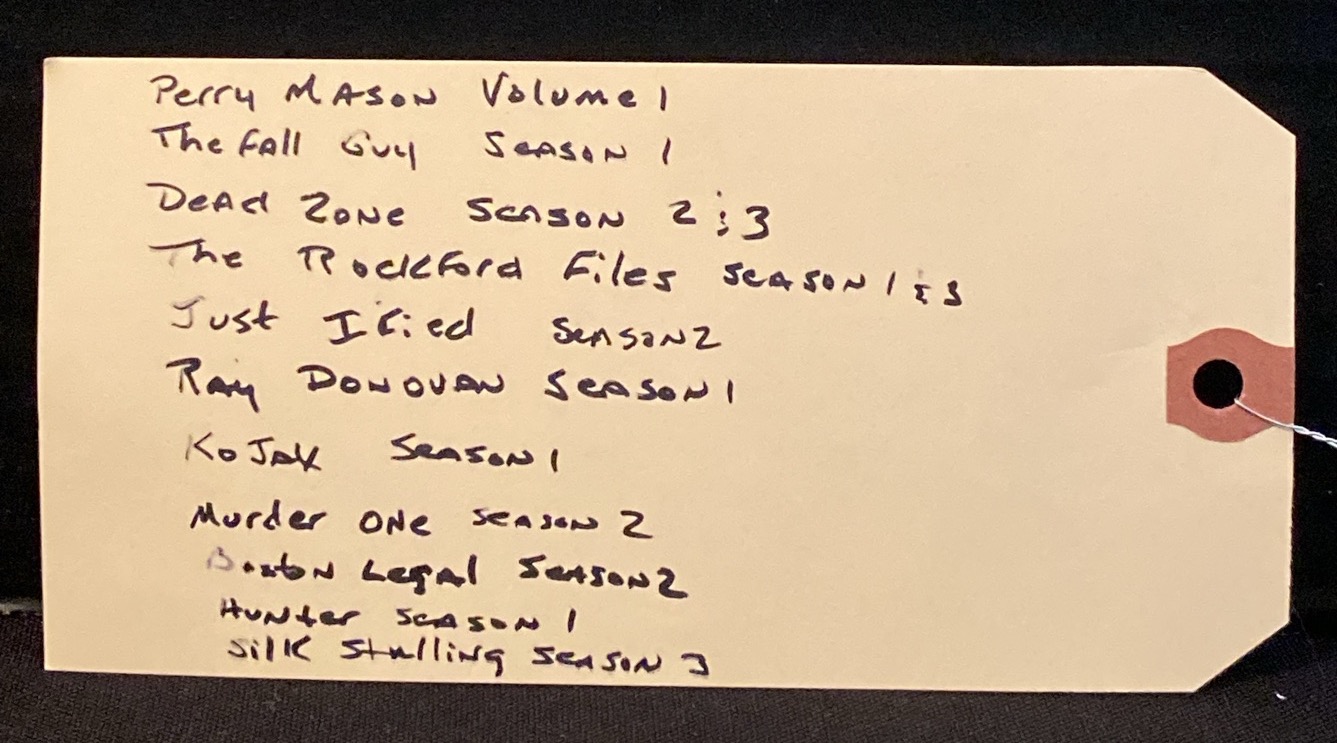 Perry Mason Volume 1
The Fall Guy Season 1
Dead Zone Season 2 & 3
The Rockford Files Season 1 & 3
Just Ified Season 2
Ray Donovan Season 1
KoJak Season 1
Murder One Season 2
Boston Legal Season 2
Hunter Season 1
Silk Stalling Season 3